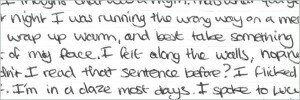 night I was running the wrong way on a me
wrap up warm, and best take something
of my face. I felt along the walls, hoping
didn't I read that sentence before? I flicked
. I'm in a daze most days. I spoke to Luc